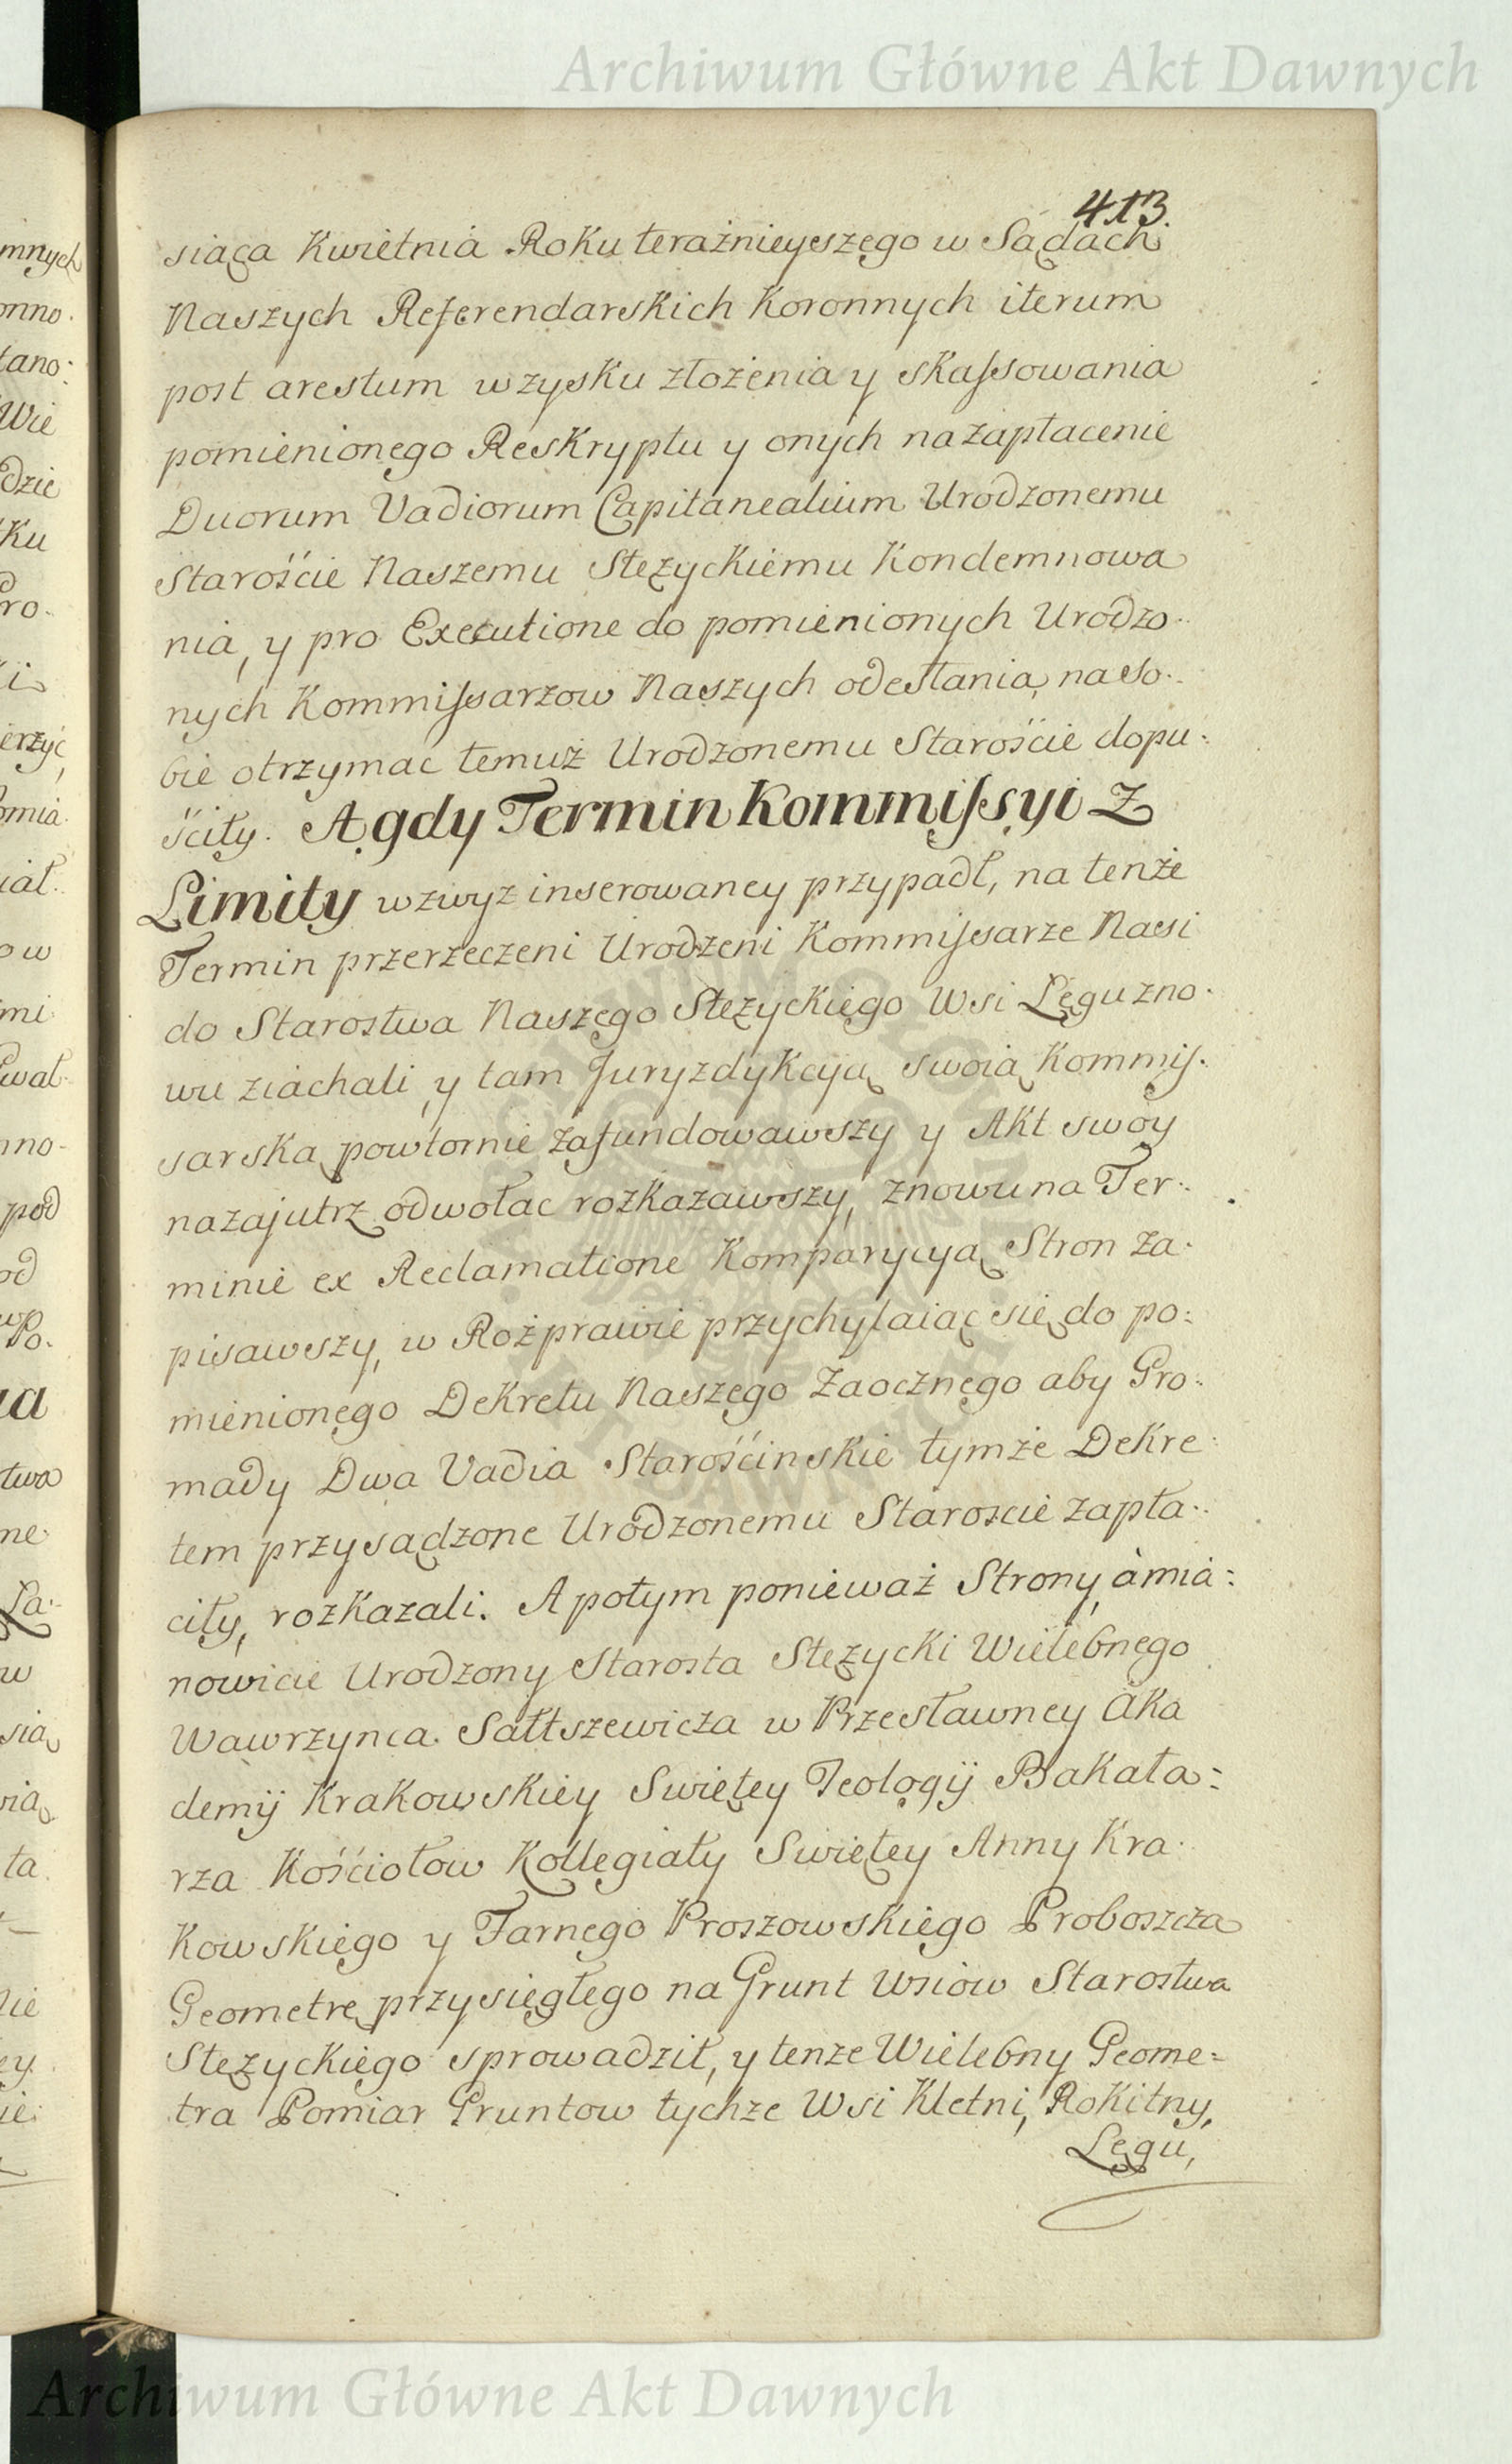 Archiwum Główne Akt Dawnych
413.
siąca Kwietnia Roku teraźnieyszego w Sądach
Naszych Referendarskich Koronnych iterum
post arestum w zysku złożenia y skassowania
pomienionego Reskryptu y onych na zapłacenie
Duorum Vadiorum Capitanealium Urodzonemu
Starościе Naszemu Stężyckiemu Kondemnowa
nia, y pro Executione do pomienionych Urodzo-
nych Kommissarzow Naszych odesłania, na so-
bie otrzymac temuż Urodzonemu Starościе dopu:
ściły. A gdy Termin Kommissyi z
Limity wzwyz inserowaney przypadł, na tenże
Termin przerzeczeni Urodzeni Kommissarze Nasi
do Starostwa Naszego Stężyckiego Wsi Łęgu zno-
wu ziachali, y tam Juryzdykcyą swoią Kommis-
sarską powtornie zafundowawszy y Akt swoy
nazajutrz odwołac rozkazawszy, znowu na Ter-
minie ex Reclamatione Komparycyą Stron za-
pisawszy, w Rozprawie przychylaiąc się do po:
mienionego Dekretu Naszego Zaocznego aby Gro-
mady Dwa Vadia Starościnskie tymże Dekre-
tem przysądzone Urodzonemu Staroscie zapła-
ciły, rozkazali. A potym ponieważ Strony, à mia:
nowicie Urodzony Starosta Stężycki Wielebnego
Wawrzynca Sałtszewicza w Przesławney Aka
demij Krakowskiey Swiętey Teologij Bakała:
rza Kościołow Kollegiaty Swiętey Anny Kra-
kowskiego y Farnego Proszowskiego Proboszcza
Geometrę przysięgłego na Grunt Wsiow Starostwa
Stężyckiego sprowadził, y tenze Wielebny Geome=
tra Pomiar Gruntow tychże Wsi Kletni, Rokitny,
Łęgu,
Archiwum Główne Akt Dawnych